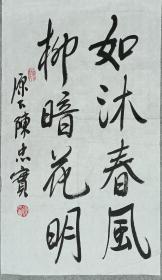 如沐春風
柳暗花明
原下陳忠實